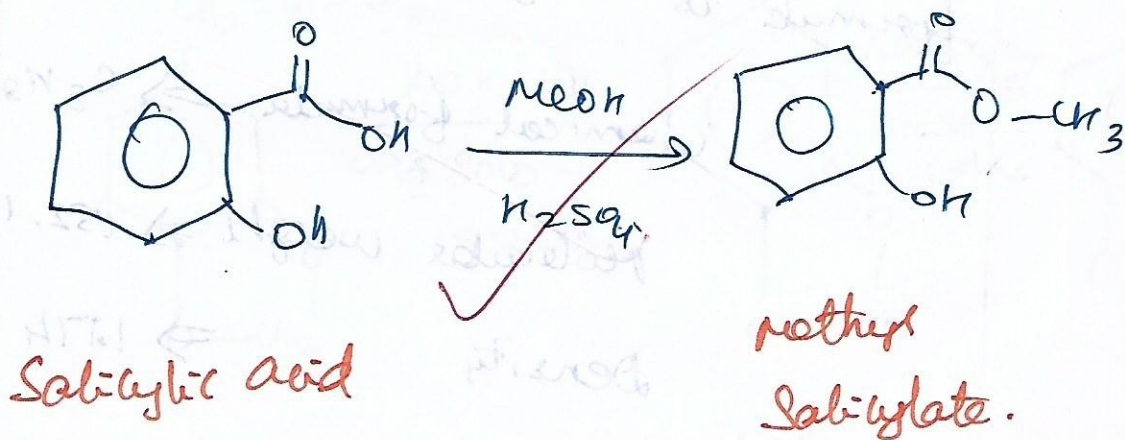 O
OH
OH
MeOH
H2SO4
O
O-CH3
OH
Salicylic acid
Methyl
Salicylate.
Density